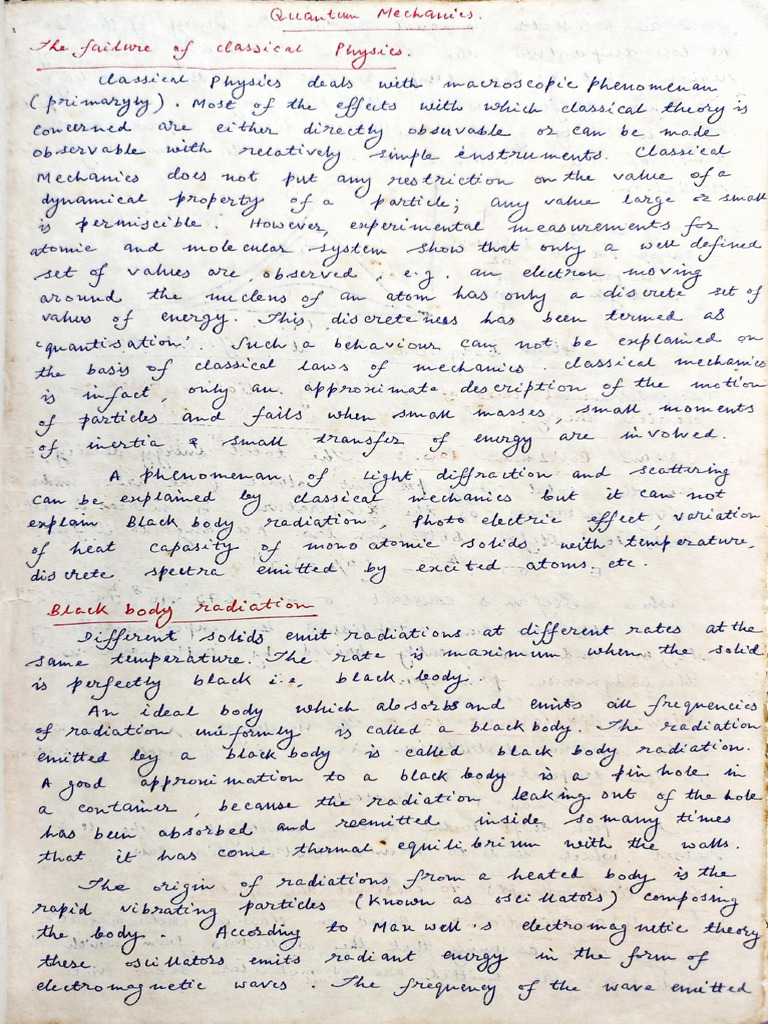 Quantum Mechanics.
The failure of classical Physics.
Classical Physics deals with macroscopic phenomenan
(primaryly). Most of the effects with which classical theory is
concerned are either directly observable or can be made
observable with relatively simple instruments. Classical
Mechanics does not put any restriction on the value of a
dynamical property of a particle; any value large or small
is permiscible. However, experimental measurements for
atomic and molecular system show that only a well defined
set of values are observed, e.g. an electron moving
around the nucleus of an atom has only a discrete set of
values of energy. This discreteness has been termed as
'quantisation'. Such a behaviour can not be explained on
the basis of classical laws of mechanics. Classical mechanics
is infact, only an approximate description of the motion
of particles and fails when small masses, small moments
of inertia & small transfer of energy are involved.
A phenomenan of light diffraction and scattering
can be explained by classical mechanics but it can not
explain Black body radiation, Photo electric effect, variation
of heat capasity of mono atomic solids with temperature,
discrete spectra emitted by excited atoms etc.
Black body radiation
Different solids emit radiations at different rates at the
same temperature. The rate is maximum when the solid
is perfectly black i.e, black body.
An ideal body which absorbs and emits all frequencies
of radiation uniformly is called a black body. The radiation
emitted by a black body is called black body radiation.
A good approximation to a black body is a pin hole in
a container, because the radiation leaking out of the hole
has been absorbed and reemitted inside so many times
that it has come thermal equilibrium with the walls.
The origin of radiations from a heated body is the
rapid vibrating particles (known as oscillators) composing
the body. According to Maxwell's electromagnetic theory
these oscillators emits radiant energy in the form of
electromagnetic waves. The frequency of the wave emitted